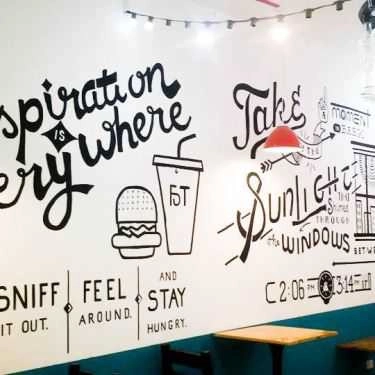 spiration
IS
ery where
FDT
SNIFF
IT OUT.
FEEL
AROUND.
AND
STAY
HUNGRY.
Take
A
moment
Sunlight
THAT
Shines
THROUGH
the WINDOWS
BETWE
2:06 PM
3:14 PM